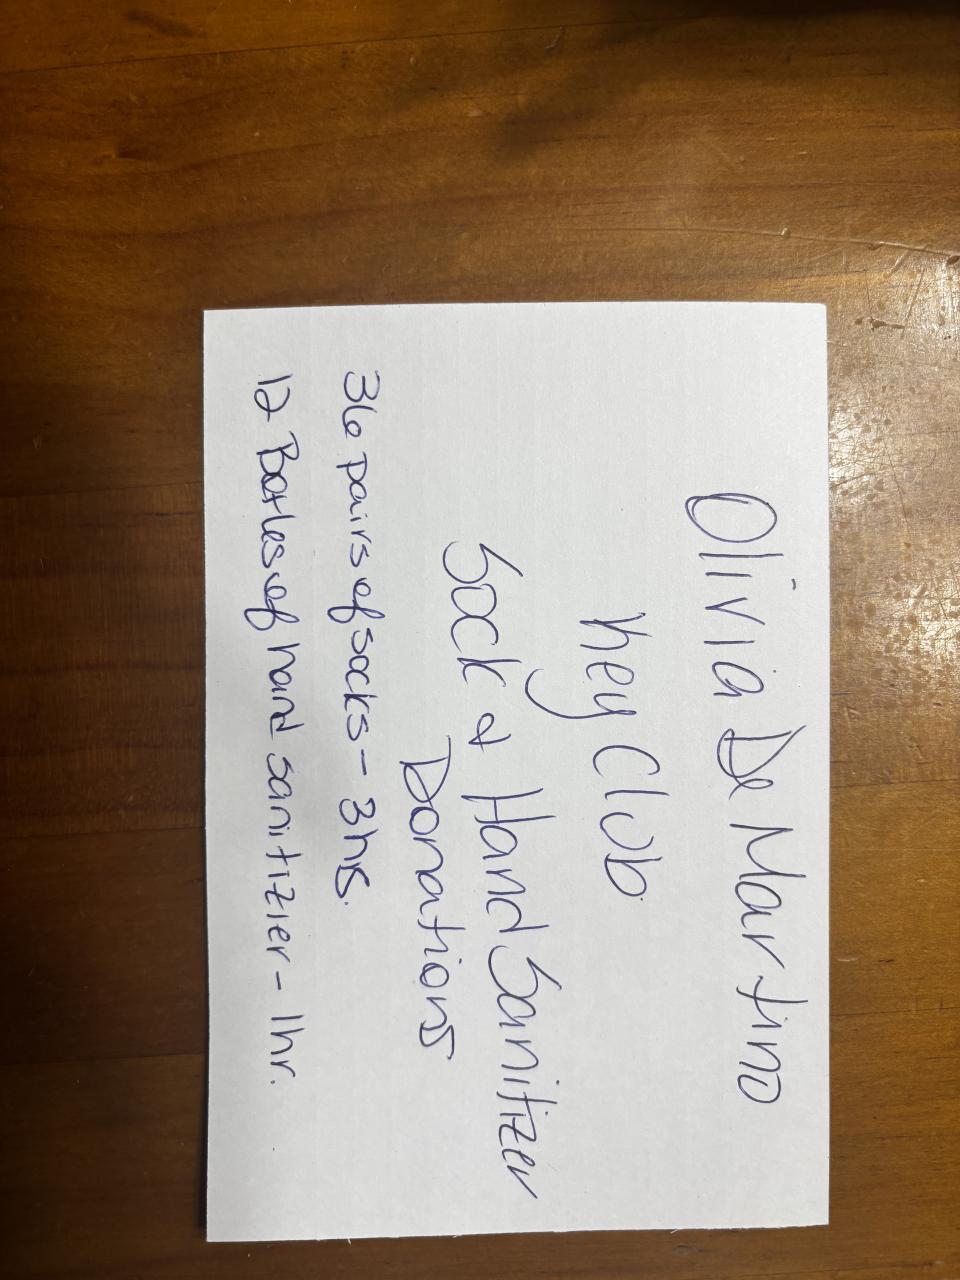 Olivia De Martino
Key Club
Sock & Hand Sanitizer
Donations
36 pairs of socks - 3hrs.
12 Bottles of hand sanitizier - 1hr.